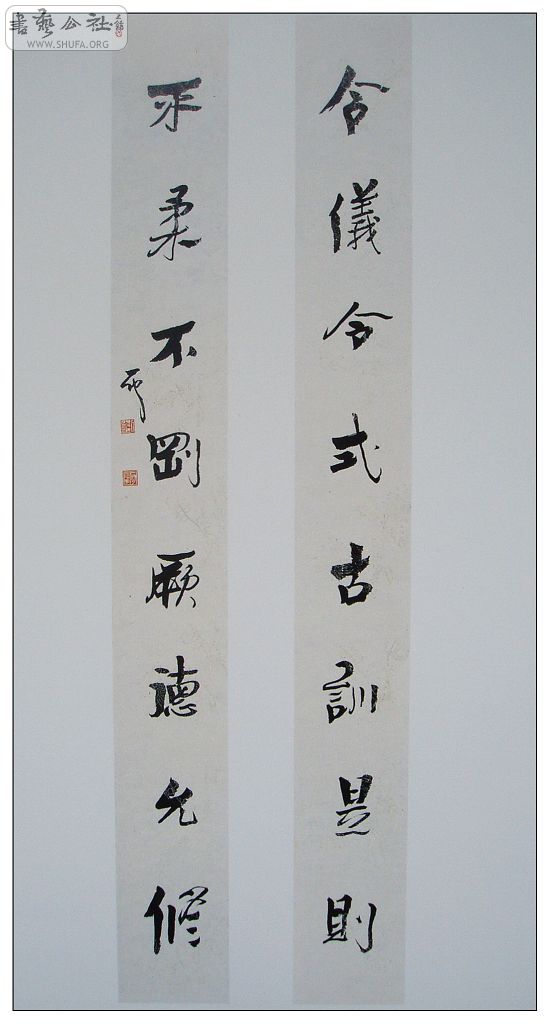 書藝公社
WWW.SHUFA.ORG
令儀令式古訓是則
不柔不剛厥德允修